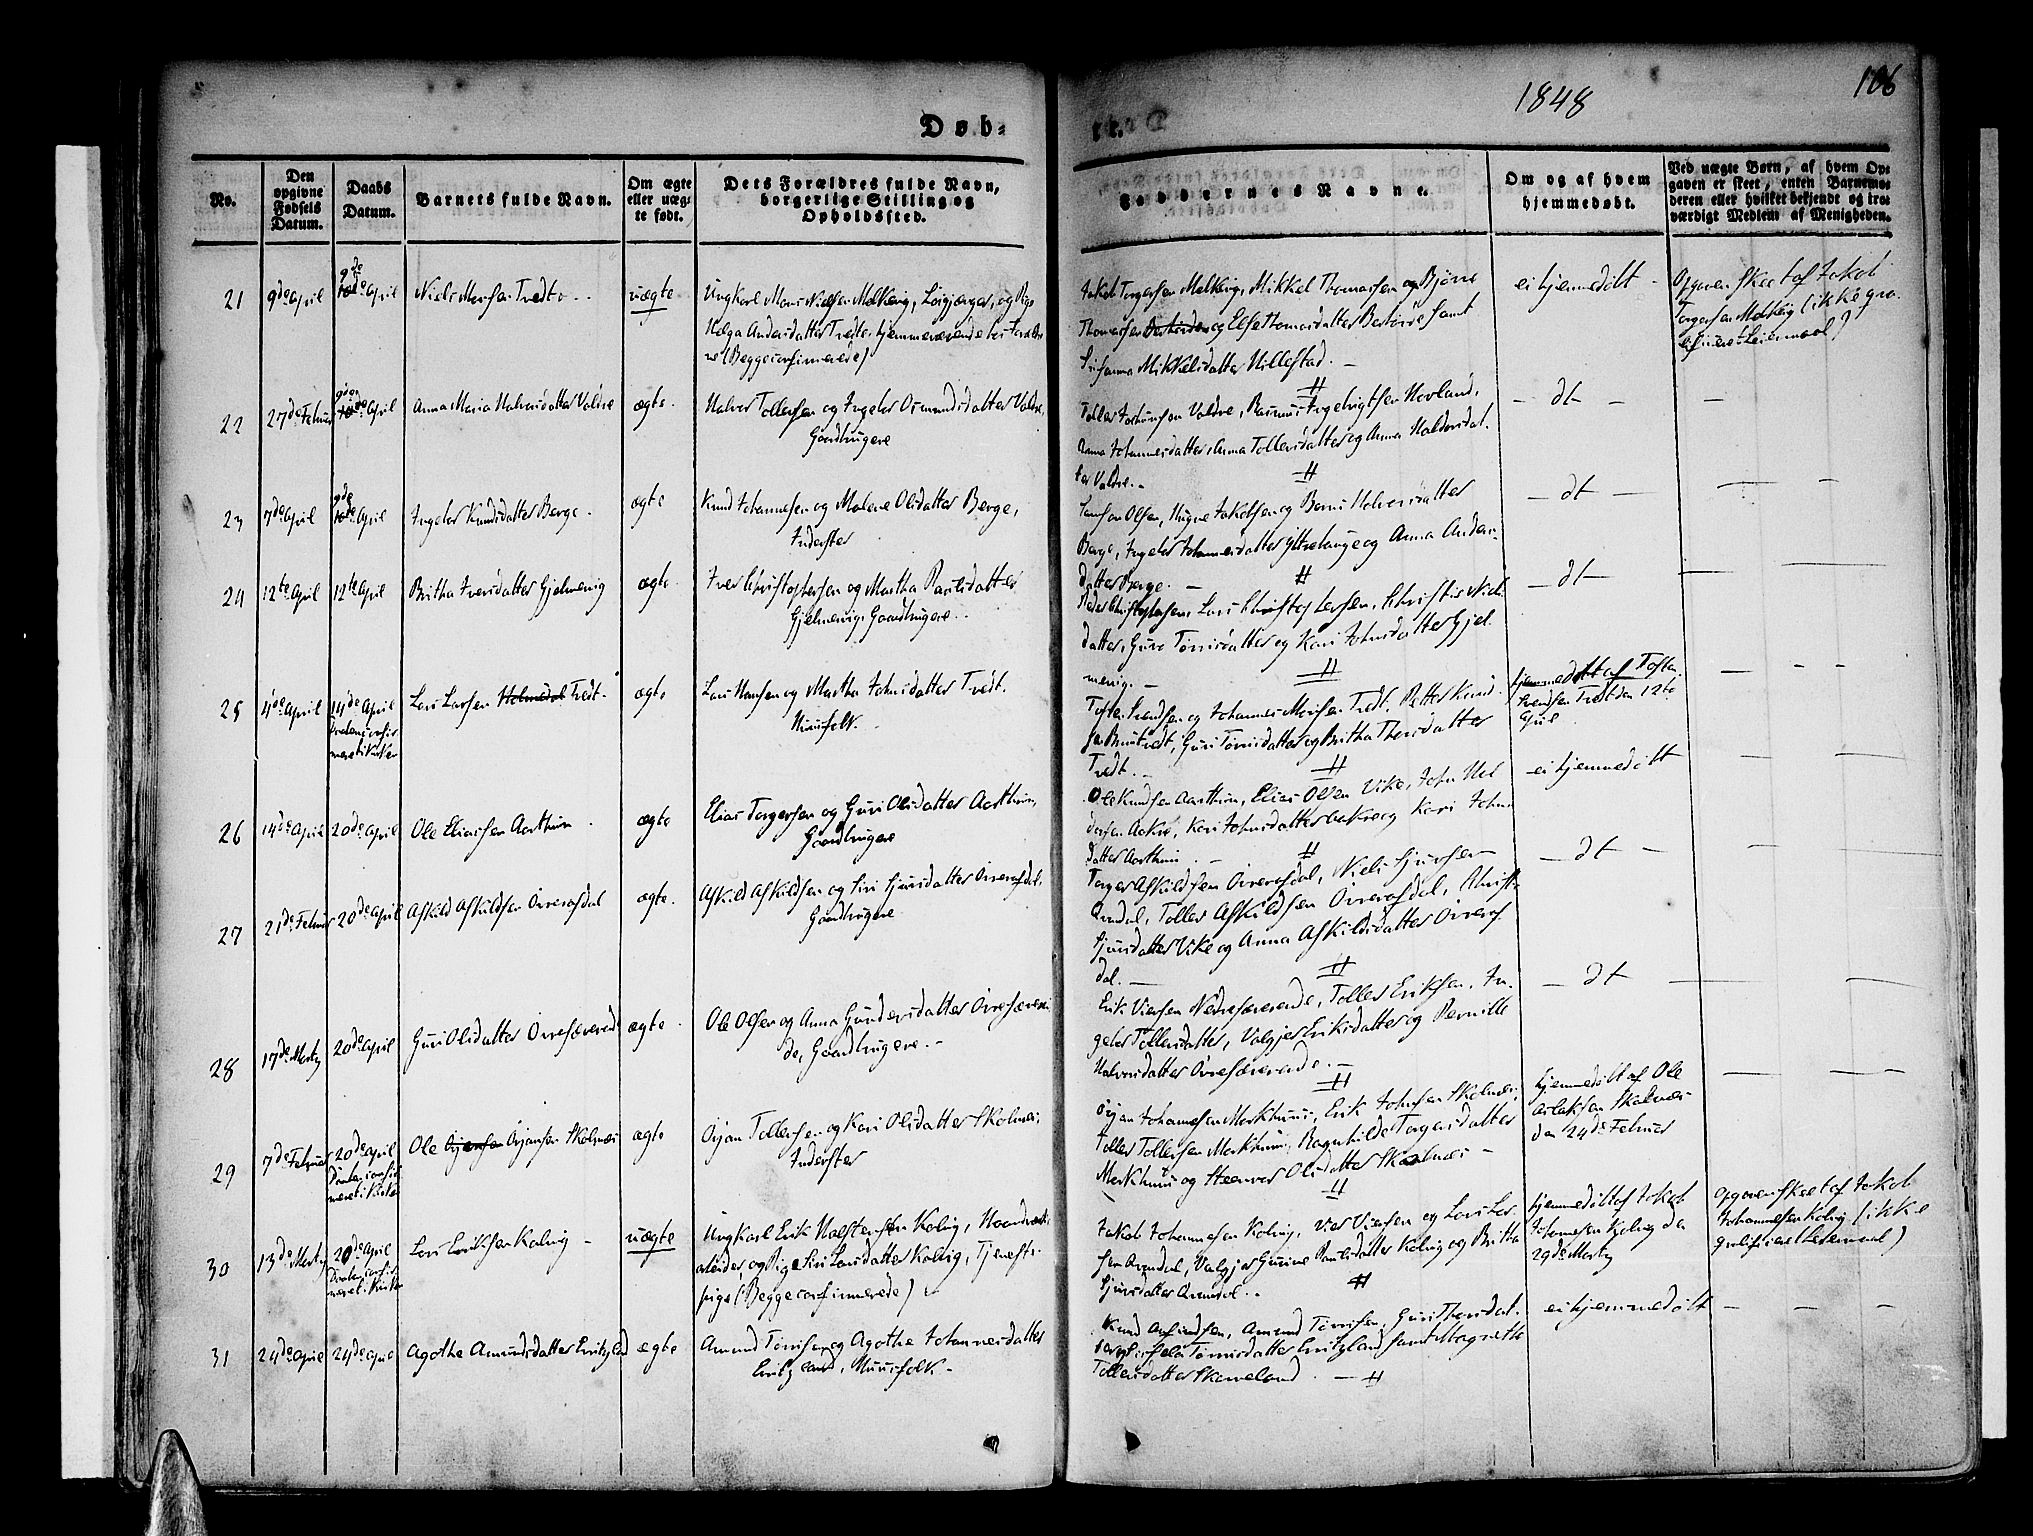 1848
106
Døb-
te.
No.
Den opgivne Fødsels Datum.
Daabs Datum.
Barnets fulde Navn.
Om ægte eller uægte født.
Dets Forældres fulde Navn, borgerlige Stilling og Opholdssted.
Faddernes Navne.
Om og af hvem hjemmedøbt.
Ved uægte Børn, af hvem Opgaven er skeet, enten Barnemoderen eller hvilket bekjendt og troværdigt Medlem af Menigheden.
21
9de April
9de April
Niels Monsen Tredt
uægte
Ungkarl Mons Nielsen Mølkevig, og Pige
Helga Andersdatter Tredte, hjemmeværende hos Foræld-
re (Begge confirmerede)
Jakob Torgersen Mølkevig, Mikkel Thomassen og Bjørne
Thomassen og Else Thomasdatter samt
Mikkelsdatter Hillestad.
ei hjemmedøbt
Opgaven skeet af Jakob
Torgersen (ikke qva-
lificeret Leiermaal)
22
27de Februar
9de April
Anna Maria Halvorsdatter Valdre
ægte
Halvor Tollefsen og Ingebor Osmundsdatter Valdre,
Gaardbrugere
Valdre, Rasmus Ingebrigtsen Hovland,
Anna Johannesdatter, Anna Tollefsdatter og Anna Haldorsdat-
ter Valdre.
dt
23
7de April
9de April
Ingebor Knudsdatter Berge
ægte
Knud Johannesen og Malene Olsdatter Berge,
Inderster
Samson Olsen, Jakobsen og Halvorsdatter
Berge, Ingebor Johannesdatter og Anna Anders-
datter Berge.
dt
24
12te April
12te April
Britha Iversdatter Gjelmervig
ægte
Iver Christophersen og Martha Paulsdatter
Gjelmervig, Gaardbrugere
Peder Christophersen, Lars Christophersen, Niels-
datter, Guro Tørrisdatter og Kari Johnsdatter Gjel-
mervig.
dt
25
4de April
14de April
Lars Larsen Holmedal Tredt
ægte
Lars Hansen og Martha Johnsdatter Tredt.
Huusfolk
Torsten Svendsen og Johannes Monsen Tredt, Petter Knud-
sen Bruntvedt, Guri Tørrisdatter og Britha Thorsdatter
Tredt.
hjemmedøbt af Tosten
Svendsen Tredt den 12te
April
26
14de April
20de April
Ole Eliassen Aarthun
ægte
Elias Torgersen og Guri Olsdatter Aarthun,
Gaardbrugere
Ole Knudsen Aarthun, Elias Olsen Vike, John Hal-
dorsen Aakre, Kari Johnsdatter Aakre og Kari Johns-
datter Aarthun
ei hjemmedøbt
27
21de Februar
20de April
Askild Askildsen Øvreaasdal
ægte
Askild Askildsen og Siri Sjursdatter Øvreaasdal,
Gaardbrugere
Torger Askildsen Øvreaasdal, Niels Sjursen
Øvredal, Tollef Askildsen Øvreaasdal,
Sjursdatter Vike og Anna Askildsdatter Øvreaas-
dal.
dt
28
17de Marty
20de April
Guri Olsdatter Øvrefærevaade
ægte
Ole Olsen og Anna Gundersdatter Øvrefæreraa-
de, Gaardbrugere.
Erik Viersen Nedrefærevaade, Tollef Eriksen, In-
gebor Tollefsdatter, Valgjer Eriksdatter og Pernille
Halvorsdatter Øvrefærevaade.
dt
29
7de Februar
20de April
Ole Ørjansen Skolnæs
ægte
Ørjan Tollefsen og Kari Olsdatter Skolnæs,
Inderster
Ørjan Johannesen Markhuus, Erik Johnsen Skolnæs,
Tollef Tollefsen Markhuus, Ragnhilde Torgersdatter
Markhuus og Steenvor Olsdatter Skolnæs
hjemmedøbt af Ole
Aslaksen Skolnæs
den 24de Februar
30
13de Marty
20de April
Lars Eriksen Kalvig
uægte
Ungkarl Erik Halstensen Kalvig, Haandværks-
arbeider, og Pige Siri Larsdatter Kalvig, Tjeneste-
pige (Begge confirmerede)
Jakob Johannesen Kalvig, Vier Viersen og Lars Lar-
sen Arendal, Valgjer Gurine Paulsdatter Kalvig og Britha
Sjursdatter Arendal.
hjemmedøbt af Jakob
Johannesen Kalvig den
29de Marty
Opgaven skeet af Jakob
Johannesen Kalvig (ikke
qvalificeret Leiermaal)
31
24de April
24de April
Agathe Amundsdatter Eritzland
ægte
Amund Tørrisen og Agathe Johannesdatter
Eritzland, Huusfolk
Knud Amundsen, Amund Tørrisen, Guri Thorsdat-
ter, Tørrisdatter Eritzland samt Magrethe
Tollefsdatter Skaneland.
ei hjemmedøbt